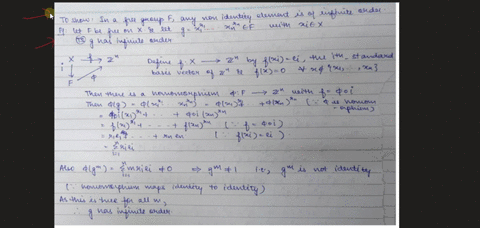 To show: In a free group F, any non identity element is of infinite order.
Pf: let F be free on X & let g = x₁^r₁ ... xₙ^rₙ ∈ F with xᵢ ∈ X
g has infinite order.
X f→ ℤⁿ Define f: X → ℤⁿ by f(xᵢ) = eᵢ, the ith standard
i ↓ φ basis vector of ℤⁿ & f(x) = 0 ∀ x ∉ {x₁, ..., xₙ}
F
Then there is a homomorphism φ: F → ℤⁿ with f = φ∘i
Then φ(g) = φ(x₁ xₙ) = φ(x₁) + φ(xₙ) (∵ φ is homom
-orphism)
= φi(x₁) + ... + φi(xₙ)
= f(x₁) + ... + f(xₙ) (∵ f = φ∘i)
= r₁e₁ + ... + rₙeₙ (∵ f(xᵢ) = eᵢ)
= Σ rᵢeᵢ
Also φ(gᵐ) = Σ m rᵢeᵢ ≠ 0 ⇒ gᵐ ≠ 1 i.e., gᵐ is not identity
(∵ homomorphism maps identity to identity)
As this is true for all m,
∴ g has infinite order.